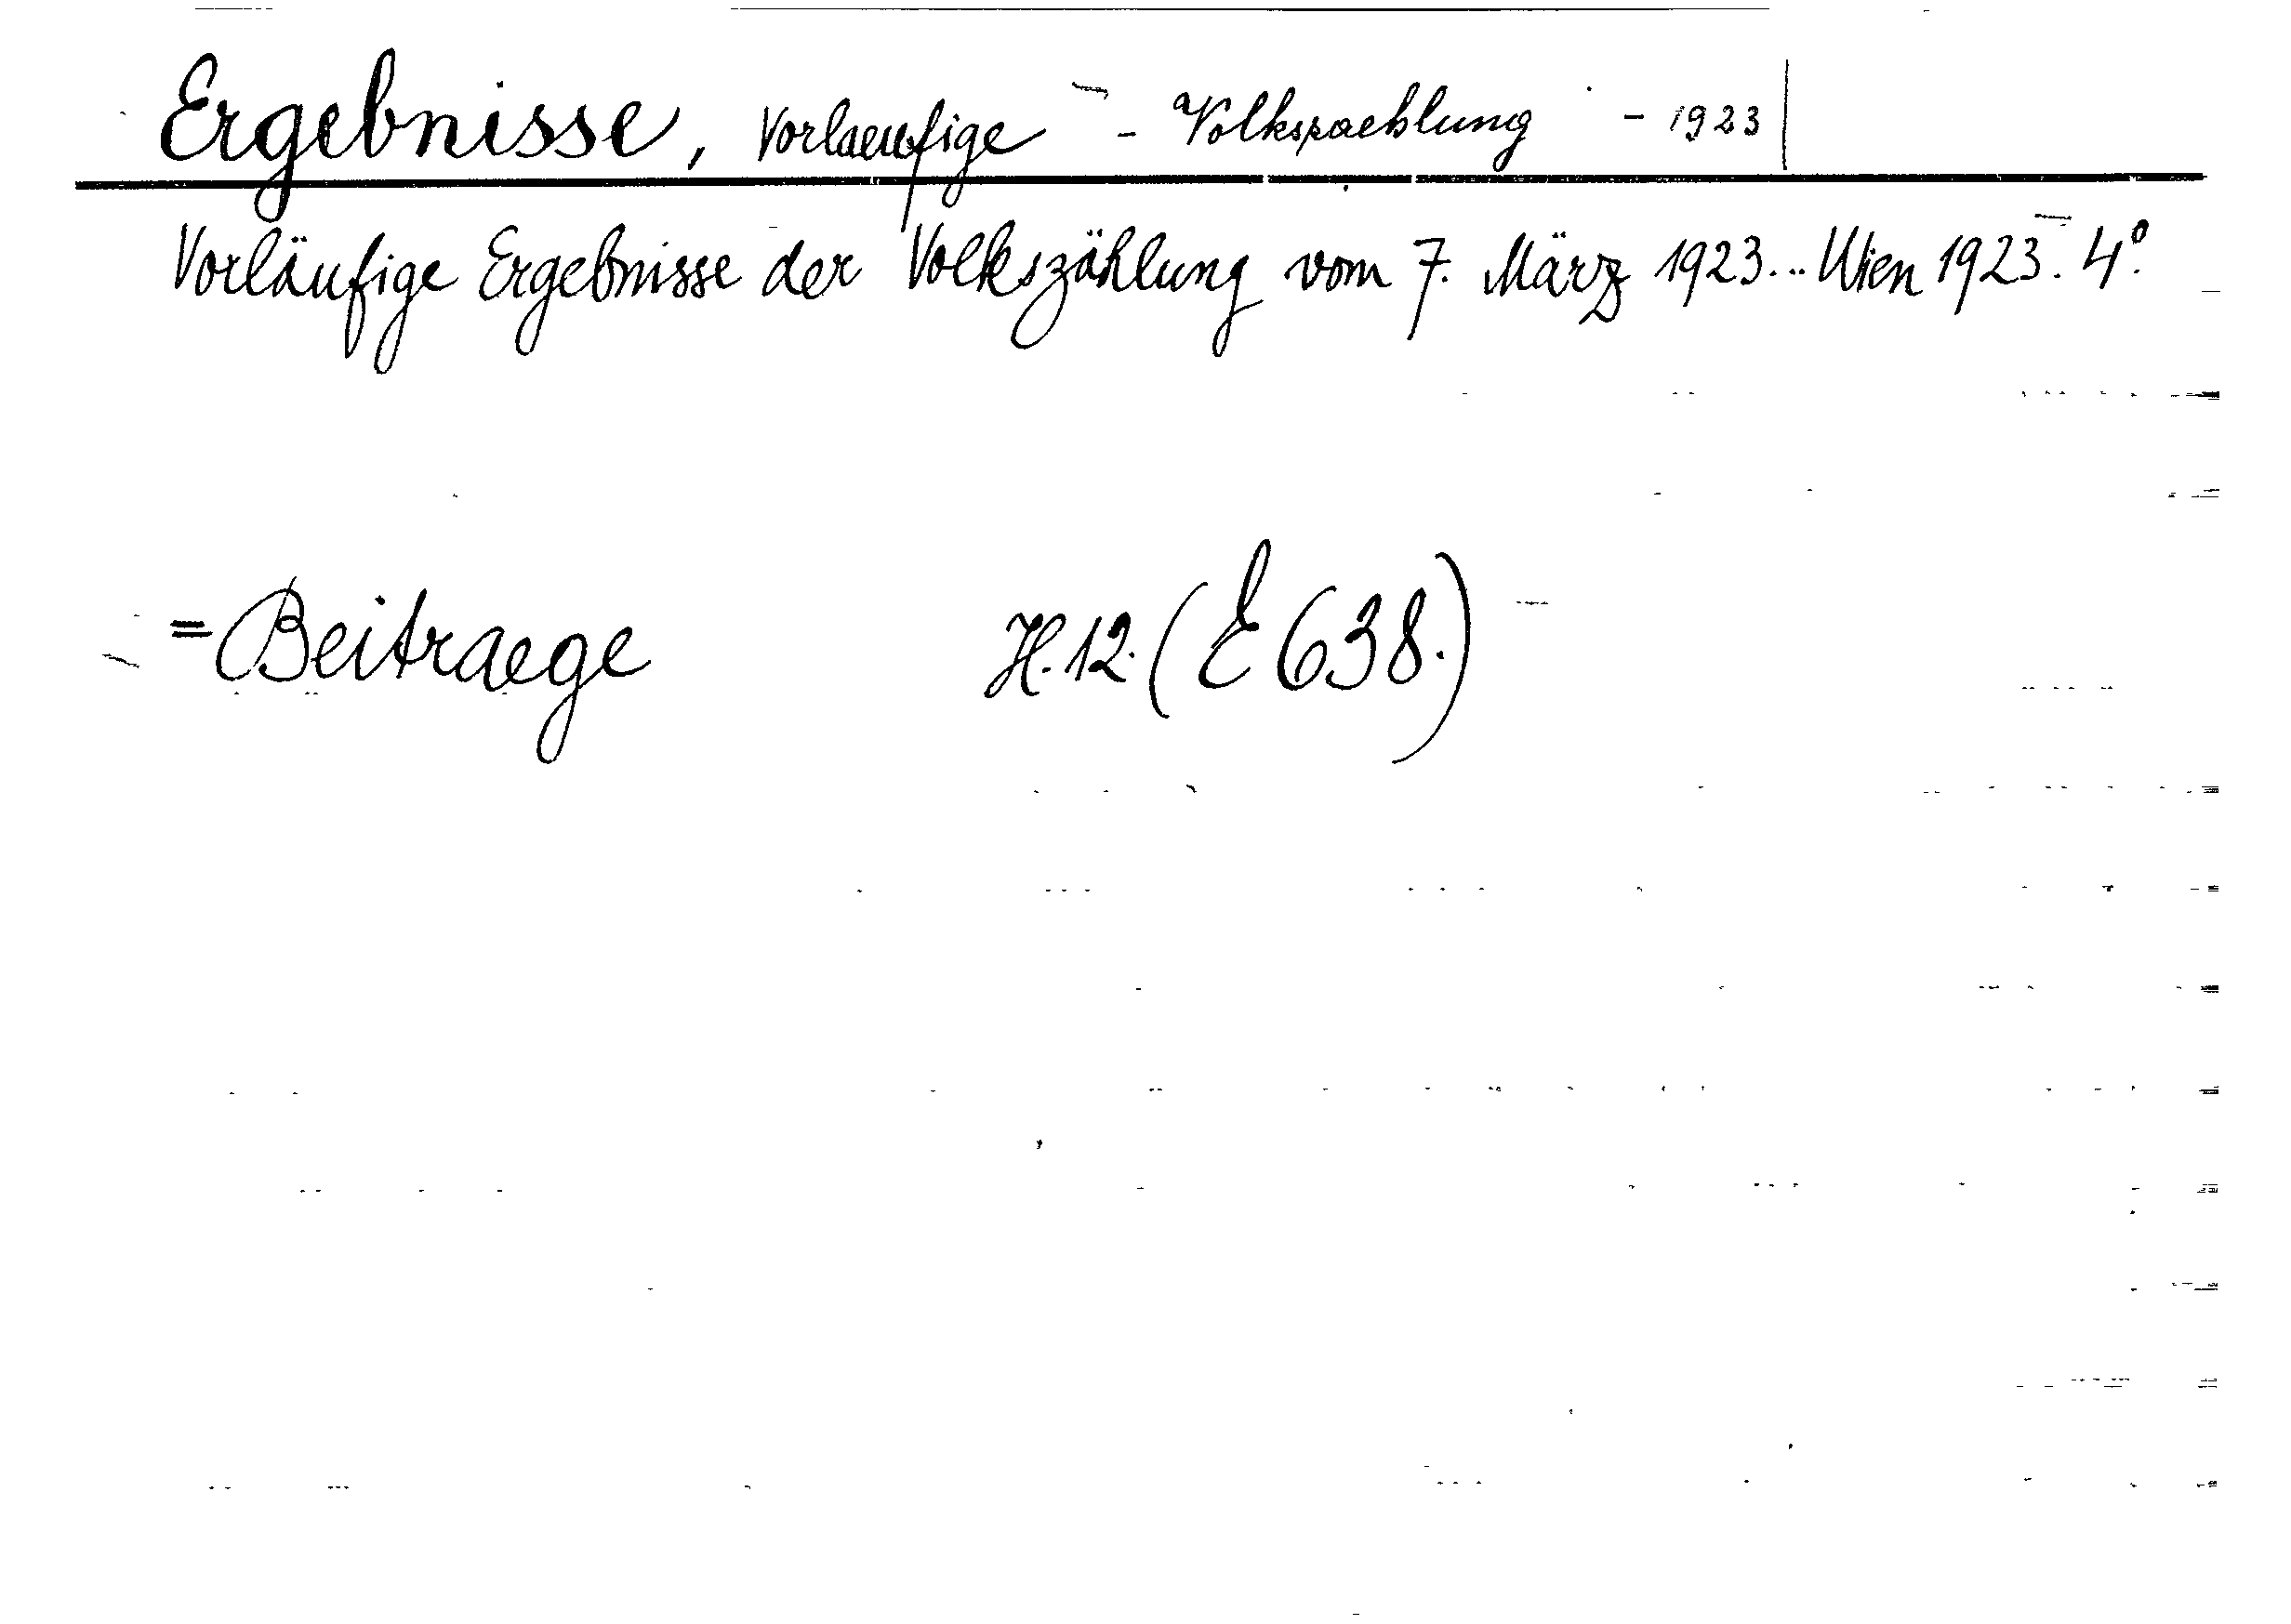 Ergebnisse, Vorlaeufige - Volkszaehlung - 1923
Vorläufige Ergebnisse der Volkszählung vom 7. März 1923... Wien 1923. 4°.
=Beitraege H. 12. (E 638.)